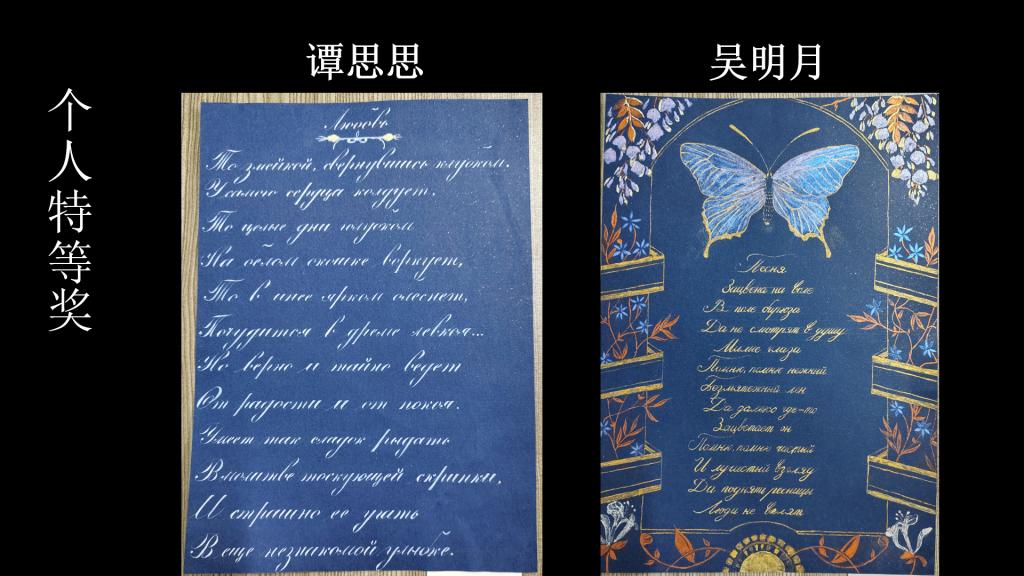 个人特等奖
谭思思
Любовь
То змейкой, свернувшись клубком,
У самого сердца колдует,
То целые дни голубком
На белом окошке воркует,
То в инее ярком блеснет,
Почудится в дреме левкоя...
Но верно и тайно ведет
От радости и от покоя.
Умеет так сладко рыдать
В молитве тоскующей скрипки,
И страшно ее угадать
В еще незнакомой улыбке.
吴明月
Песня
Зацвела на воле
В поле бирюза
Да не смотрят в душу
Милые глаза
Помню, помню нежный
Безмятежный лен
Да далеко где-то
Зацветает он
Помню, помню чистый
И лучистый взгляд
Да поднять ресницы
Люди не велят